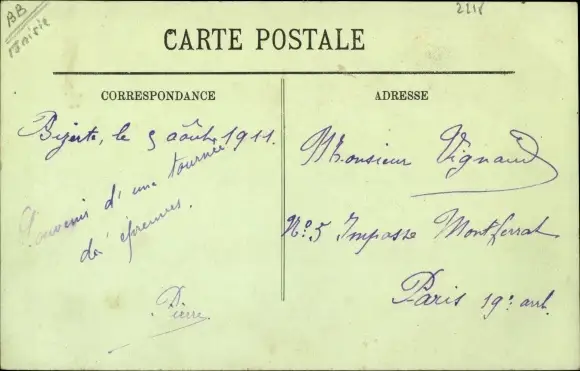 BB
Tunisie
2218
CARTE POSTALE
CORRESPONDANCE
Bizerte, le 5 août 1911.
Souvenir d'une tournée
d'épreuves.
Pierre
ADRESSE
Monsieur Vignaud
No. 5 Impasse Montferrat
Paris 19e arrt.